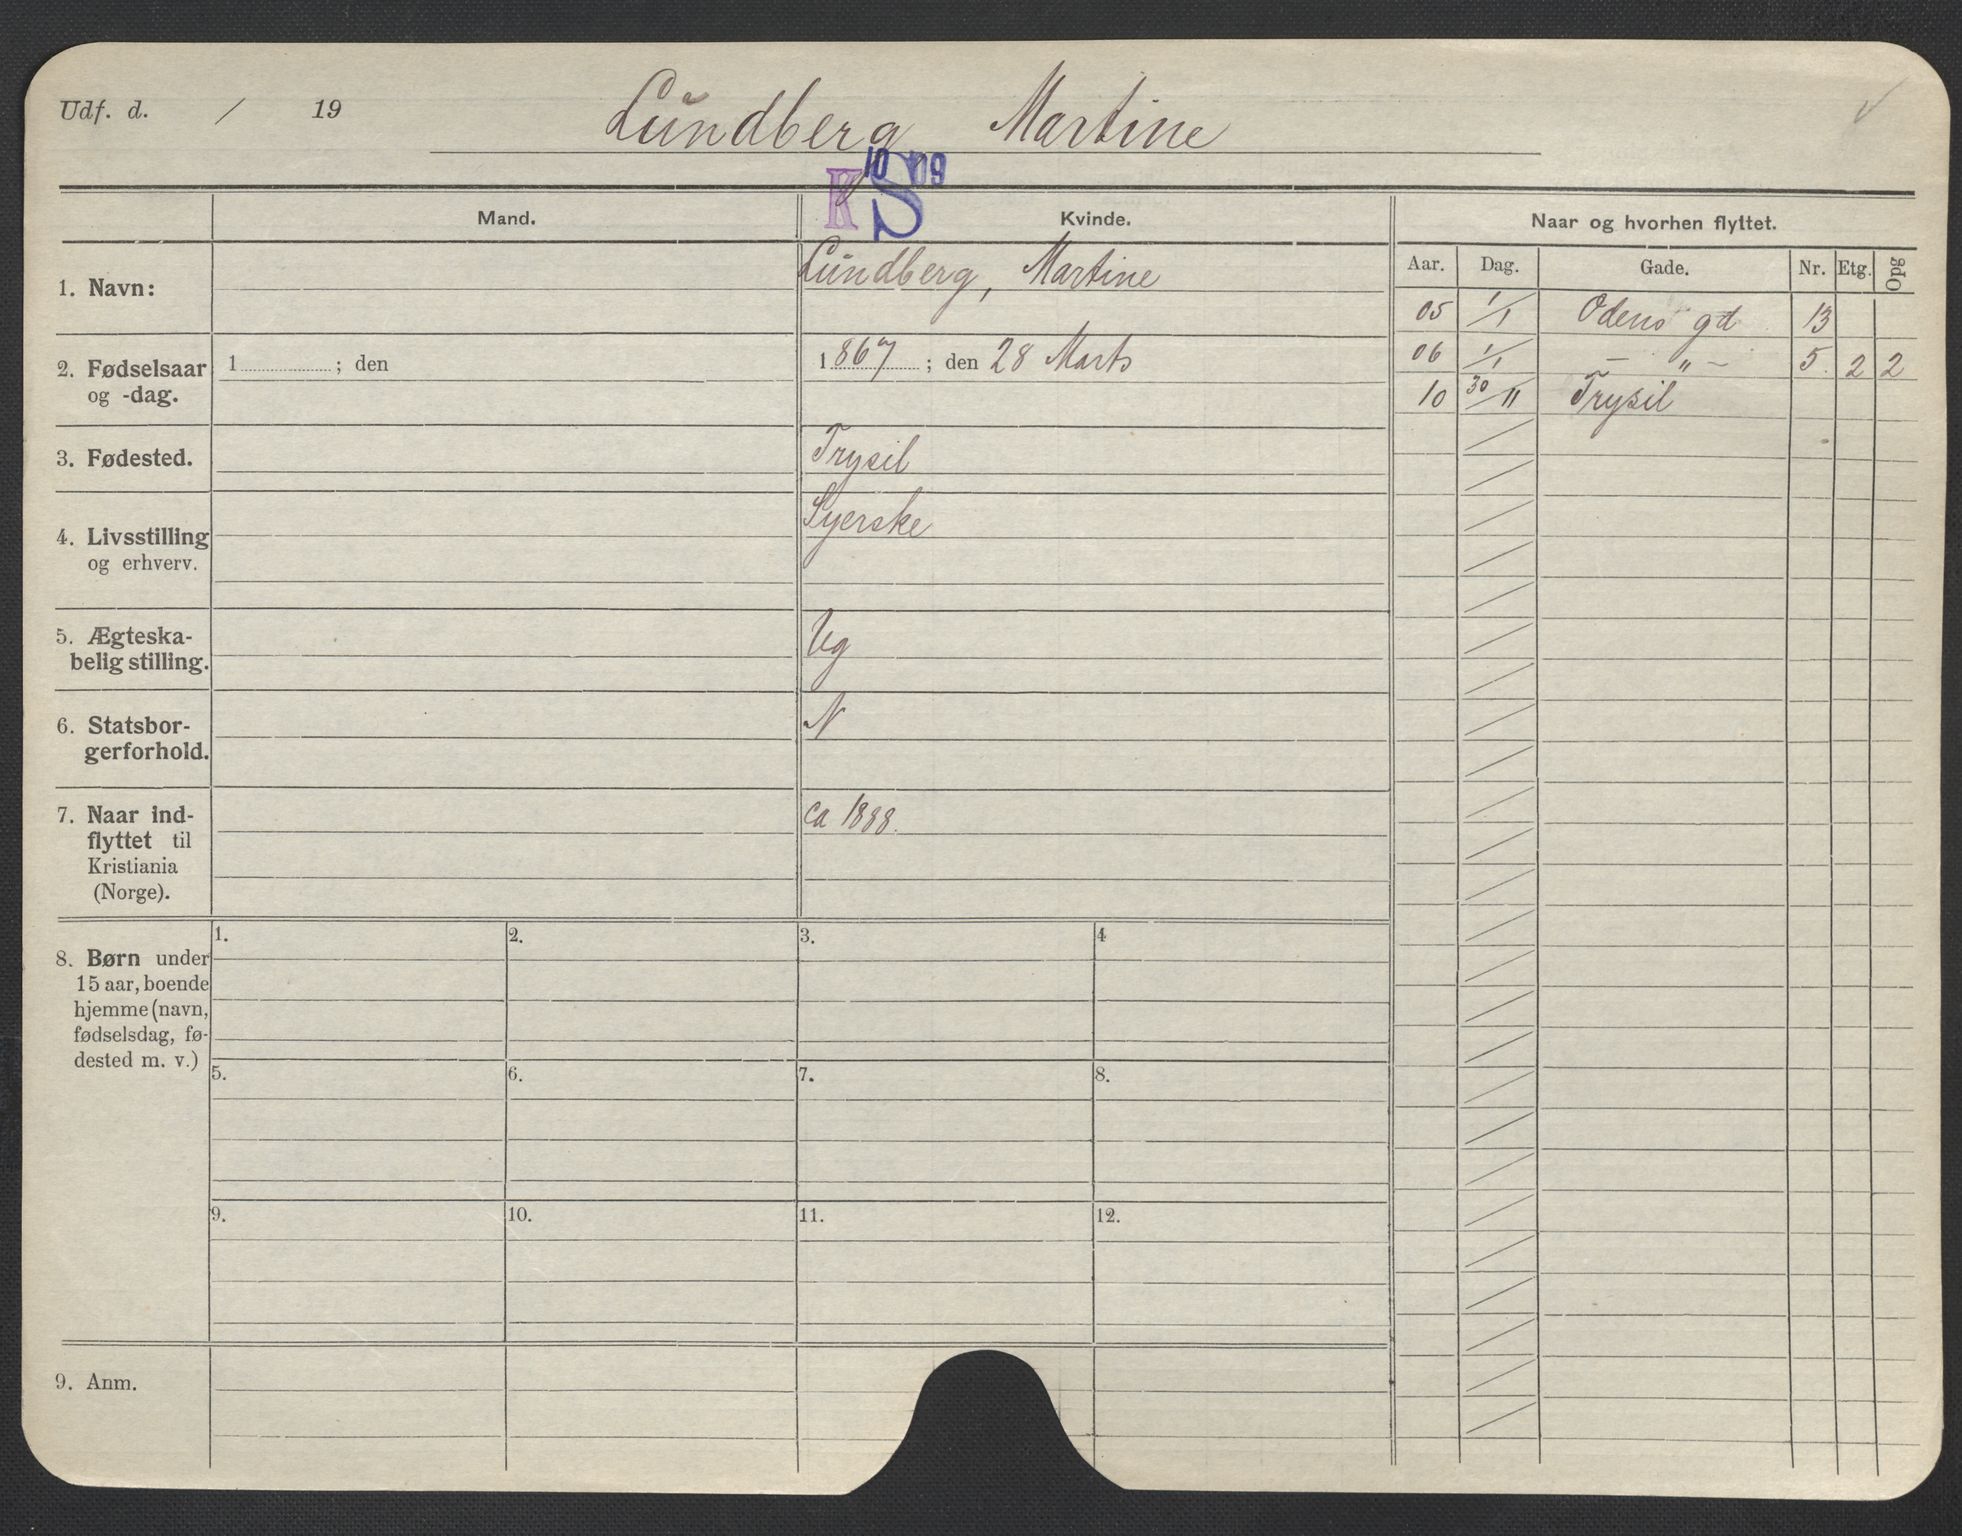 Udf. d. / 19
Lundberg Martine
K S 10 09
Mand.
Kvinde.
Naar og hvorhen flyttet.
Aar. Dag. Gade. Nr. Etg. Opg
05 1/1 Odens gd 13
06 1/1 – „ – 5. 2 2
10 30/11 Trysil
1. Navn:
Lundberg, Martine
2. Fødselsaar
og -dag.
1 ; den
1867 ; den 28 Marts
3. Fødested.
Trysil
4. Livsstilling
og erhverv.
Syerske
5. Ægteska-
belig stilling.
Ug
6. Statsbor-
gerforhold.
N
7. Naar ind-
flyttet til
Kristiania
(Norge).
ca 1888.
8. Børn under
15 aar, boende
hjemme (navn,
fødselsdag, fø-
dested m. v.)
1. 2. 3. 4
5. 6. 7. 8.
9. 10. 11. 12.
9. Anm.